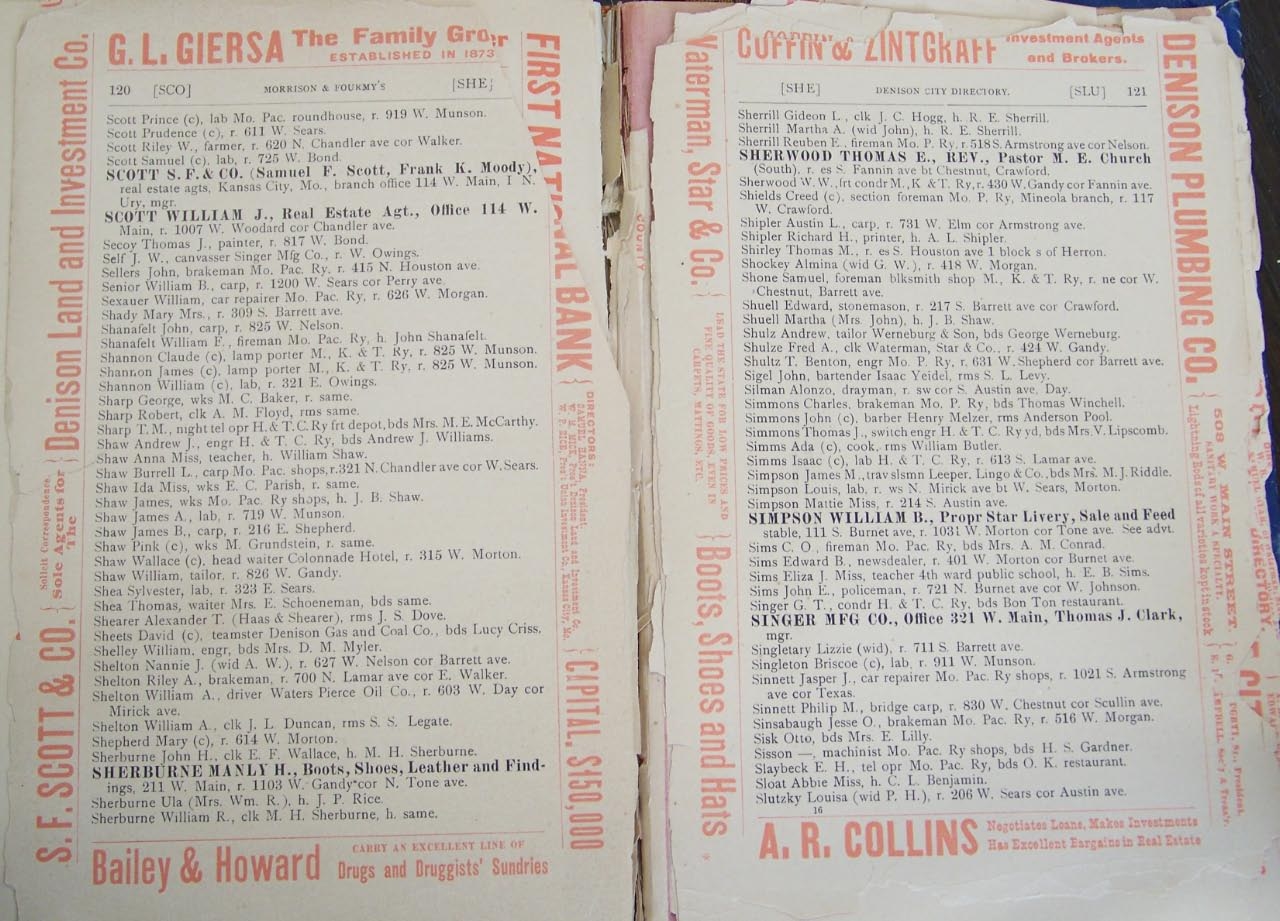 G. L. GIERSA The Family Gro
ESTABLISHED IN 1873
120 [SCO] MORRISON & FOURMY'S [SHE]
Scott Prince (c), lab Mo. Pac. roundhouse, r. 919 W. Munson.
Scott Prudence (c), r. 611 W. Sears.
Scott Riley W., farmer, r. 620 N. Chandler ave cor Walker.
Scott Samuel (c), lab, r. 725 W. Bond.
SCOTT S. F. & CO. (Samuel F. Scott, Frank K. Moody),
real estate agts, Kansas City, Mo., branch office 114 W. Main, I N.
Ury, mgr.
SCOTT WILLIAM J., Real Estate Agt., Office 114 W.
Main, r. 1007 W. Woodard cor Chandler ave.
Secoy Thomas J., painter, r. 817 W. Bond.
Self J. W., canvasser Singer Mfg Co., r. W. Owings.
Sellers John, brakeman Mo. Pac. Ry. r. 415 N. Houston ave.
Senior William B., carp, r. 1200 W. Sears cor Perry ave.
Sexauer William, car repairer Mo. Pac. Ry, r. 626 W. Morgan.
Shady Mary Mrs., r. 309 S. Barrett ave.
Shanafelt John, carp, r. 825 W. Nelson.
Shanafelt William F., fireman Mo. Pac. Ry, h. John Shanafelt.
Shannon Claude (c), lamp porter M., K. & T. Ry, r. 825 W. Munson.
Shannon James (c), lamp porter M., K. & T. Ry, r. 825 W. Munson.
Shannon William (c), lab, r. 321 E. Owings.
Sharp George, wks M. C. Baker, r. same.
Sharp Robert, clk A. M. Floyd, rms same.
Sharp T. M., night tel opr H. & T. C. Ry frt depot, bds Mrs. M. E. McCarthy.
Shaw Andrew J., engr H. & T. C. Ry, bds Andrew J. Williams.
Shaw Anna Miss, teacher, h. William Shaw.
Shaw Burrell L., carp Mo. Pac. shops, r. 321 N. Chandler ave cor W. Sears.
Shaw Ida Miss, wks E. C. Parish, r. same.
Shaw James, wks Mo. Pac. Ry shops, h. J. B. Shaw.
Shaw James A., lab, r. 719 W. Munson.
Shaw James B., carp, r. 216 E. Shepherd.
Shaw Pink (c), wks M. Grundstein, r. same.
Shaw Wallace (c), head waiter Colonnade Hotel, r. 315 W. Morton.
Shaw William, tailor, r. 826 W. Gandy.
Shea Sylvester, lab, r. 323 E. Sears.
Shea Thomas, waiter Mrs. E. Schoeneman, bds same.
Shearer Alexander T. (Haas & Shearer), rms J. S. Dove.
Sheets David (c), teamster Denison Gas and Coal Co., bds Lucy Criss.
Shelley William, engr, bds Mrs. D. M. Myler.
Shelton Nannie J. (wid A. W.), r. 627 W. Nelson cor Barrett ave.
Shelton Riley A., brakeman, r. 700 N. Lamar ave cor E. Walker.
Shelton William A., driver Waters Pierce Oil Co., r. 603 W. Day cor
Mirick ave.
Shelton William A., clk J. L. Duncan, rms S. S. Legate.
Shepherd Mary (c), r. 614 W. Morton.
Sherburne John H., clk E. F. Wallace, h. M. H. Sherburne.
SHERBURNE MANLY H., Boots, Shoes, Leather and Find-
ings, 211 W. Main, r. 1103 W. Gandy cor N. Tone ave.
Sherburne Ula (Mrs. Wm. R.), h. J. P. Rice.
Sherburne William R., clk M. H. Sherburne, h. same.
Bailey & Howard CARRY AN EXCELLENT LINE OF
Drugs and Druggists' Sundries
S. F. SCOTT & CO. { Solicit Correspondence.
Sole Agents for
The } Denison Land and Investment Co.
FIRST NATIONAL BANK { DIRECTORS:
SAMUEL HANNA, President.
CAPITAL. $150,000
COUNTY
COFFIN & ZINTGRAFF Investment Agents
and Brokers.
[SHE] DENISON CITY DIRECTORY. [SLU] 121
Sherrill Gideon L., clk J. C. Hogg, h. R. E. Sherrill.
Sherrill Martha A. (wid John), h. R. E. Sherrill.
Sherrill Reuben E., fireman Mo. P. Ry, r. 518 S. Armstrong ave cor Nelson.
SHERWOOD THOMAS E., REV., Pastor M. E. Church
(South), r. es S. Fannin ave bt Chestnut, Crawford.
Sherwood W. W., frt condr M., K & T. Ry, r. 430 W. Gandy cor Fannin ave.
Shields Creed (c), section foreman Mo. P. Ry, Mineola branch, r. 117
W. Crawford.
Shipler Austin L., carp, r. 731 W. Elm cor Armstrong ave.
Shipler Richard H., printer, h. A. L. Shipler.
Shirley Thomas M., r. es S. Houston ave 1 block s of Herron.
Shockey Almina (wid G. W.), r. 418 W. Morgan.
Shone Samuel, foreman blksmith shop M., K. & T. Ry, r. ne cor W.
Chestnut, Barrett ave.
Shuell Edward, stonemason, r. 217 S. Barrett ave cor Crawford.
Shuell Martha (Mrs. John), h. J. B. Shaw.
Shulz Andrew, tailor Werneburg & Son, bds George Werneburg.
Shulze Fred A., clk Waterman, Star & Co., r. 424 W. Gandy.
Shultz T. Benton, engr Mo. P. Ry, r. 631 W. Shepherd cor Barrett ave.
Sigel John, bartender Isaac Yeidel, rms S. L. Levy.
Silman Alonzo, drayman, r. sw cor S. Austin ave, Day.
Simmons Charles, brakeman Mo. P. Ry, bds Thomas Winchell.
Simmons John (c), barber Henry Melzer, rms Anderson Pool.
Simmons Thomas J., switch engr H. & T. C. Ry yd, bds Mrs. V. Lipscomb.
Simms Ada (c), cook, rms William Butler.
Simms Isaac (c), lab H. & T. C. Ry, r. 613 S. Lamar ave.
Simpson James M., trav slsmn Leeper, Lingo & Co., bds Mrs. M. J. Riddle.
Simpson Louis, lab, r. ws N. Mirick ave bt W. Sears, Morton.
Simpson Mattie Miss, r. 214 S. Austin ave.
SIMPSON WILLIAM B., Propr Star Livery, Sale and Feed
stable, 111 S. Burnet ave, r. 1031 W. Morton cor Tone ave. See advt.
Sims C. O., fireman Mo. Pac. Ry, bds Mrs. A. M. Conrad.
Sims Edward B., newsdealer, r. 401 W. Morton cor Burnet ave.
Sims Eliza J. Miss, teacher 4th ward public school, h. E. B. Sims.
Sims John E., policeman, r. 721 N. Burnet ave cor W. Johnson.
Singer G. T., condr H. & T. C. Ry, bds Bon Ton restaurant.
SINGER MFG CO., Office 321 W. Main, Thomas J. Clark,
mgr.
Singletary Lizzie (wid), r. 711 S. Barrett ave.
Singleton Briscoe (c), lab, r. 911 W. Munson.
Sinnett Jasper J., car repairer Mo. Pac. Ry shops, r. 1021 S. Armstrong
ave cor Texas.
Sinnett Philip M., bridge carp, r. 830 W. Chestnut cor Scullin ave.
Sinsabaugh Jesse O., brakeman Mo. Pac. Ry, r. 516 W. Morgan.
Sisk Otto, bds Mrs. E. Lilly.
Sisson —, machinist Mo. Pac. Ry shops, bds H. S. Gardner.
Slaybeck E. H., tel opr Mo. Pac. Ry, bds O. K. restaurant.
Sloat Abbie Miss, h. C. L. Benjamin.
Slutzky Louisa (wid P. H.), r. 206 W. Sears cor Austin ave.
16
A. R. COLLINS Negotiates Loans, Makes Investments
Has Excellent Bargains in Real Estate
Waterman, Star & Co. { LEAD THE STATE FOR LOW PRICES AND
FINE QUALITY OF GOODS, EVEN IN
CARPETS, MATTINGS, ETC. } Boots, Shoes and Hats
DENISON PLUMBING CO. { 508 W. MAIN STREET.
SANITARY WORK A SPECIALTY.
Lightning Rods of all varieties kept in stock